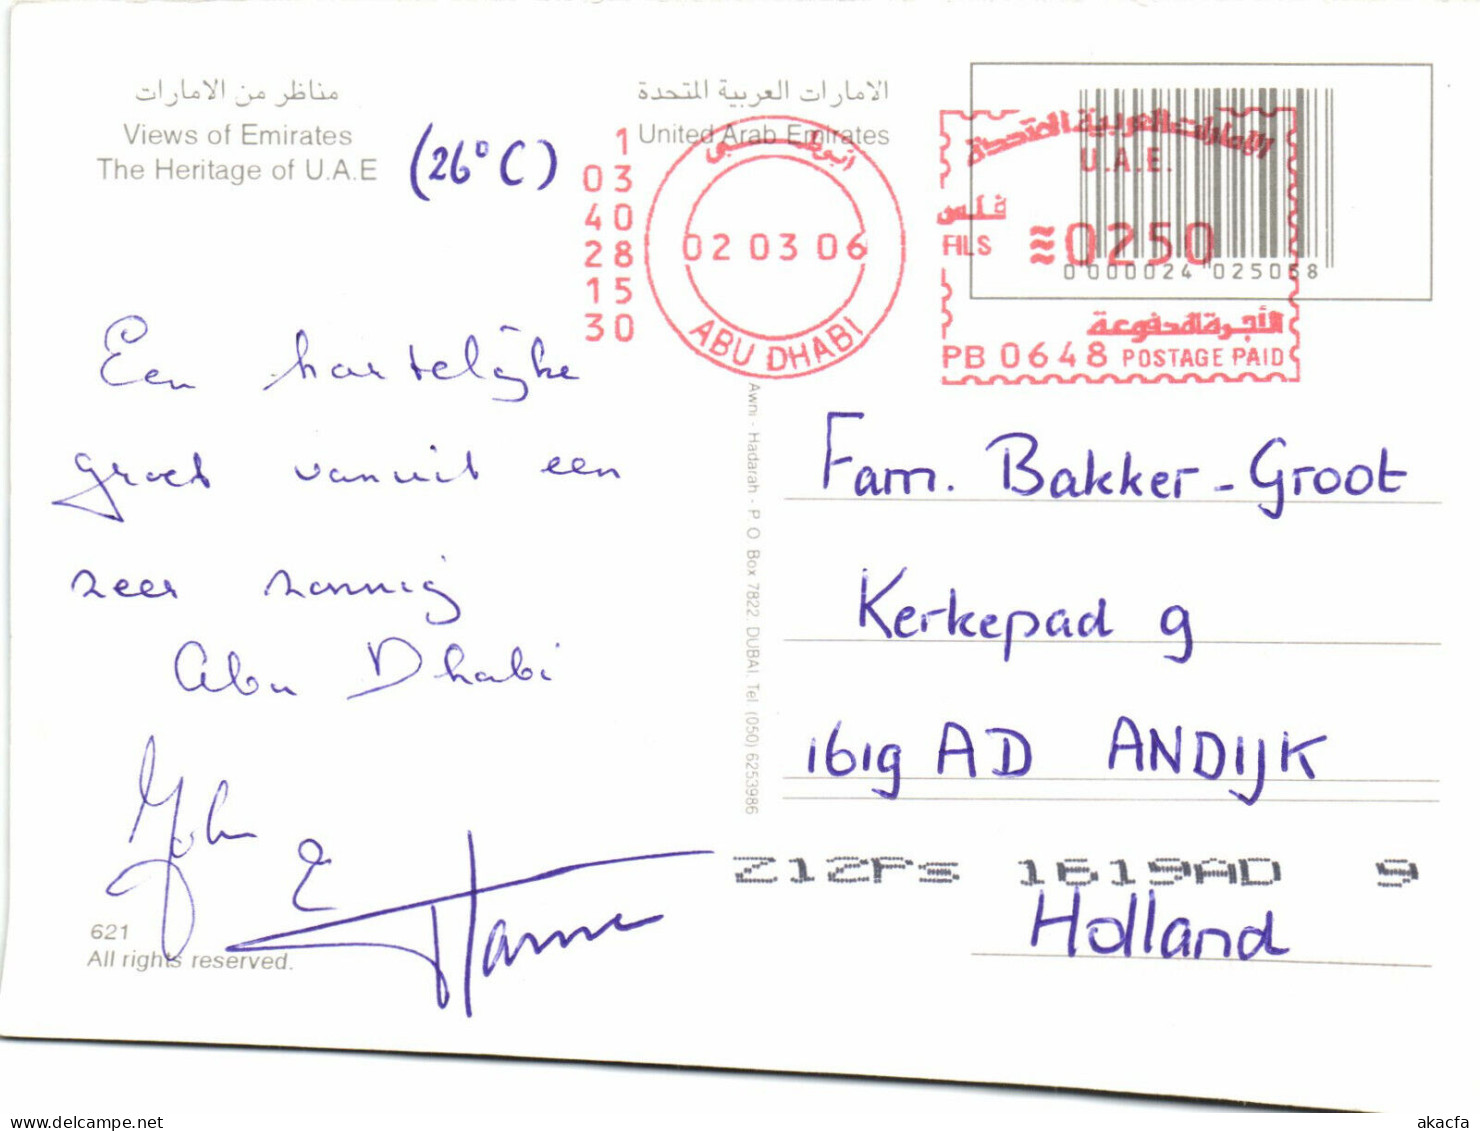 مناظر من الامارات
Views of Emirates
The Heritage of U.A.E
(26°C)
الامارات العربية المتحدة
United Arab Emirates
1
03
40
28
15
30
أبوظبي
02 03 06
ABU DHABI
الإمارات العربية المتحدة
U.A.E.
فلس
FILS
0250
0 000024 025058
الأجرة المدفوعة
PB 0648 POSTAGE PAID
Een hartelijke
groet vanuit een
zeer zonnig
Abu Dhabi
John
&
621
All rights reserved.
Awni - Hadarah - P O Box 7822, DUBAI, Tel. (050) 6253986
Fam. Bakker-Groot
Kerkepad 9
1619 AD ANDIJK
Z1ZPS 1619AD 9
Holland
www.delcampe.net
akacfa